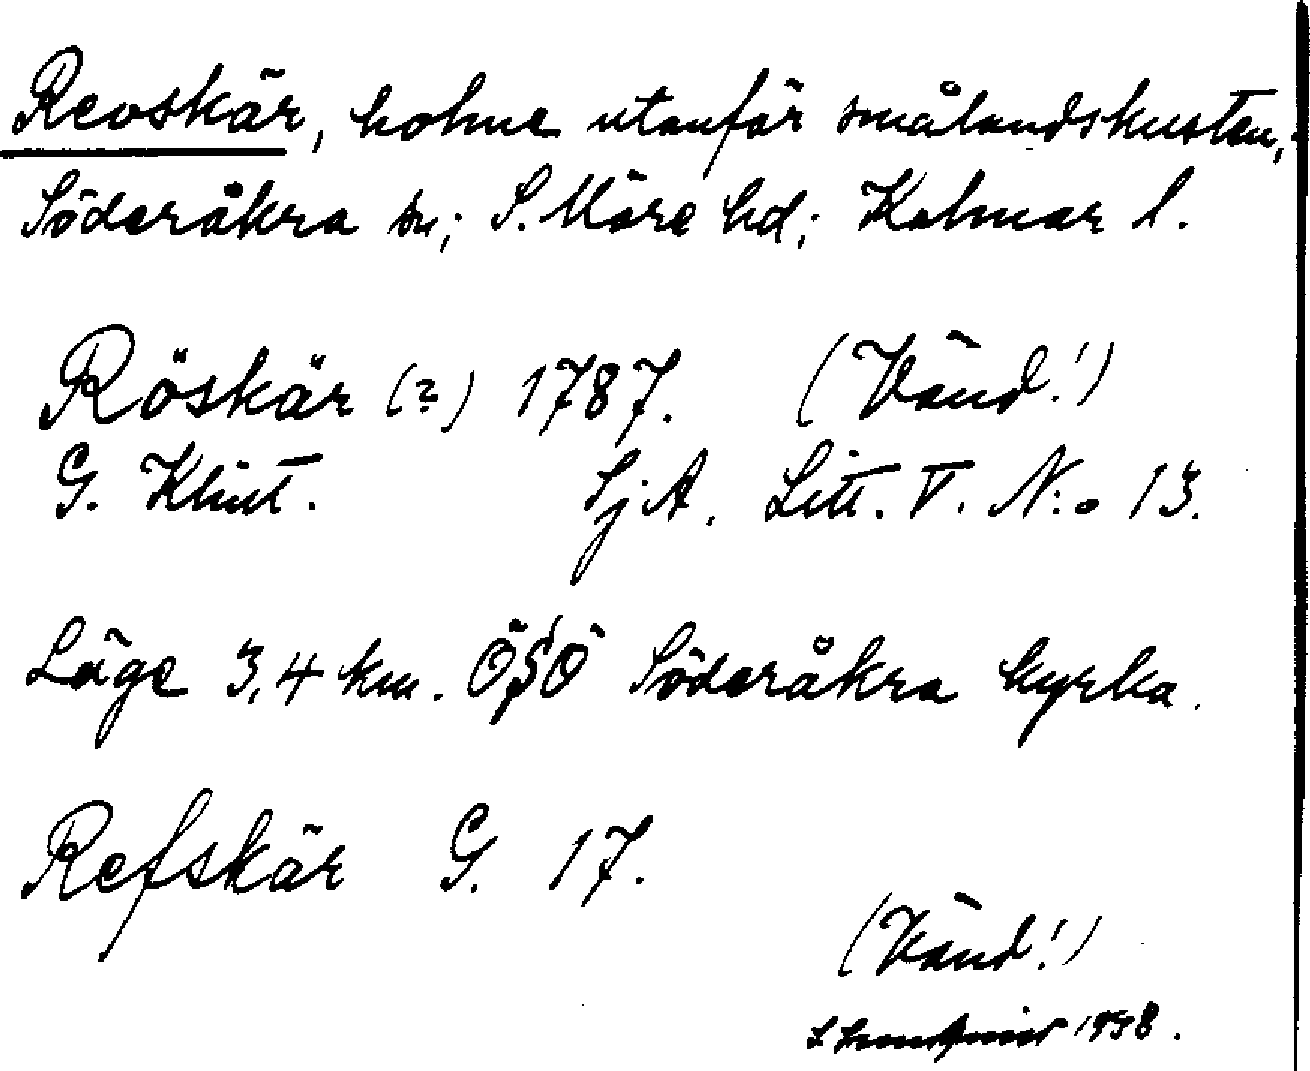 Revskär, holme utanför smålandskusten,
Söderåkra sn; S. Möre hd; Kalmar l.
Röskär (?) 1787. (Vänd!)
G. Klint. Sj.A. Litt. V. N:o 13.
Läge 3,4 km. ÖSÖ Söderåkra kyrka.
Refskär G. 17.
(Vänd!)
1958.